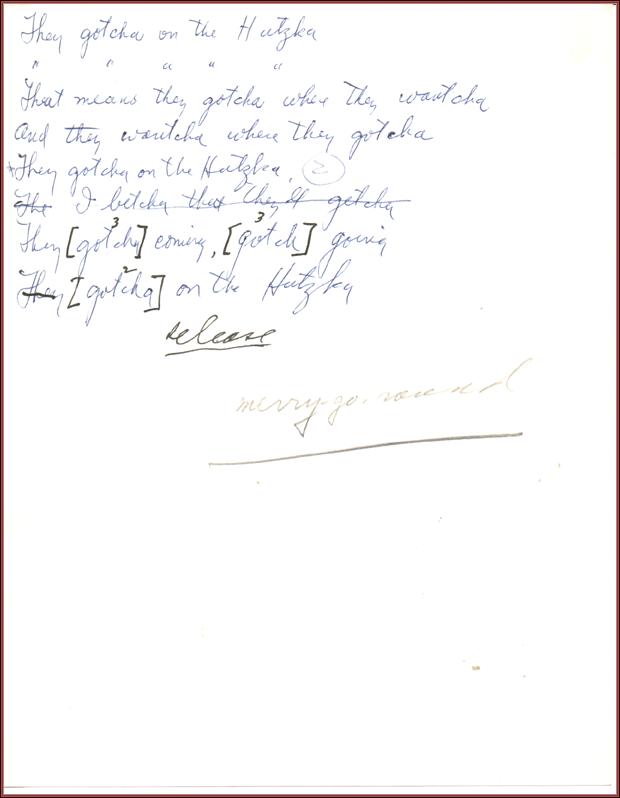 They gotcha on the Hutzka
" " " " "
That means they gotcha where they wantcha
And they wantcha where they gotcha
They gotcha on the Hutzka. 2
The I betcha that they'll getcha
3 3
They [gotcha] coming, [gotch] going
2
They [gotcha] on the Hutzka
release
merry-go-round